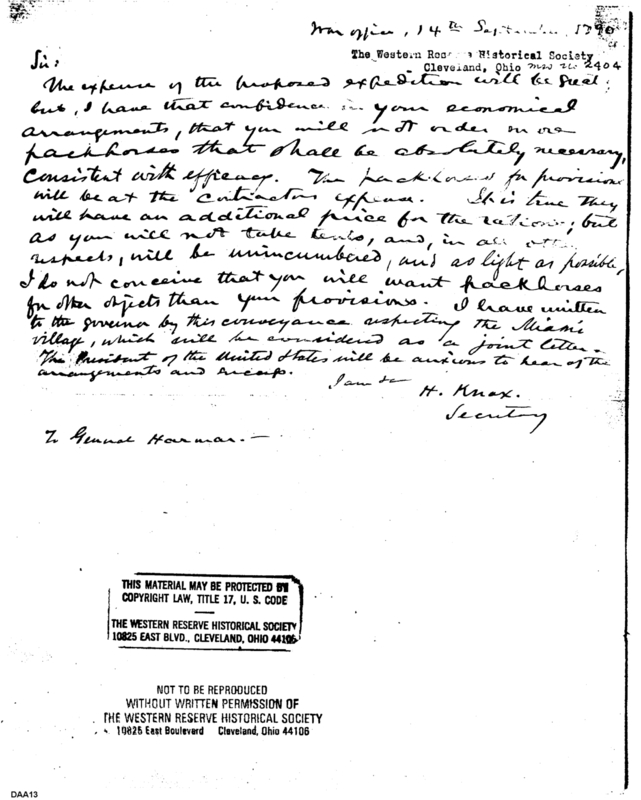 War office, 14th September, 1790
The Western Reserve Historical Society
Cleveland, Ohio MSS 2404
Sir:
The expense of the proposed expedition will be great;
but, I have that confidence in your economical
arrangements, that you will not order more
packhorses that shall be absolutely necessary,
consistent with efficacy. The packhorses for provisions
will be at the Contractors expense. It is true they
will have an additional price for the rations; but
as you will not take tents, and, in all other
respects, will be unincumbered, and as light as possible,
I do not conceive that you will want packhorses
for other objects than your provisions. I have written
to the governor by this conveyance respecting the Miami
village, which will be considered as a joint letter.
The President of the United States will be anxious to hear of the
arrangements and success.
I am &c
H. Knox.
Secretary
To General Harmar.—
THIS MATERIAL MAY BE PROTECTED BY
COPYRIGHT LAW, TITLE 17, U. S. CODE
THE WESTERN RESERVE HISTORICAL SOCIETY
10825 EAST BLVD., CLEVELAND, OHIO 44106
NOT TO BE REPRODUCED
WITHOUT WRITTEN PERMISSION OF
THE WESTERN RESERVE HISTORICAL SOCIETY
10825 East Boulevard Cleveland, Ohio 44106
DAA13